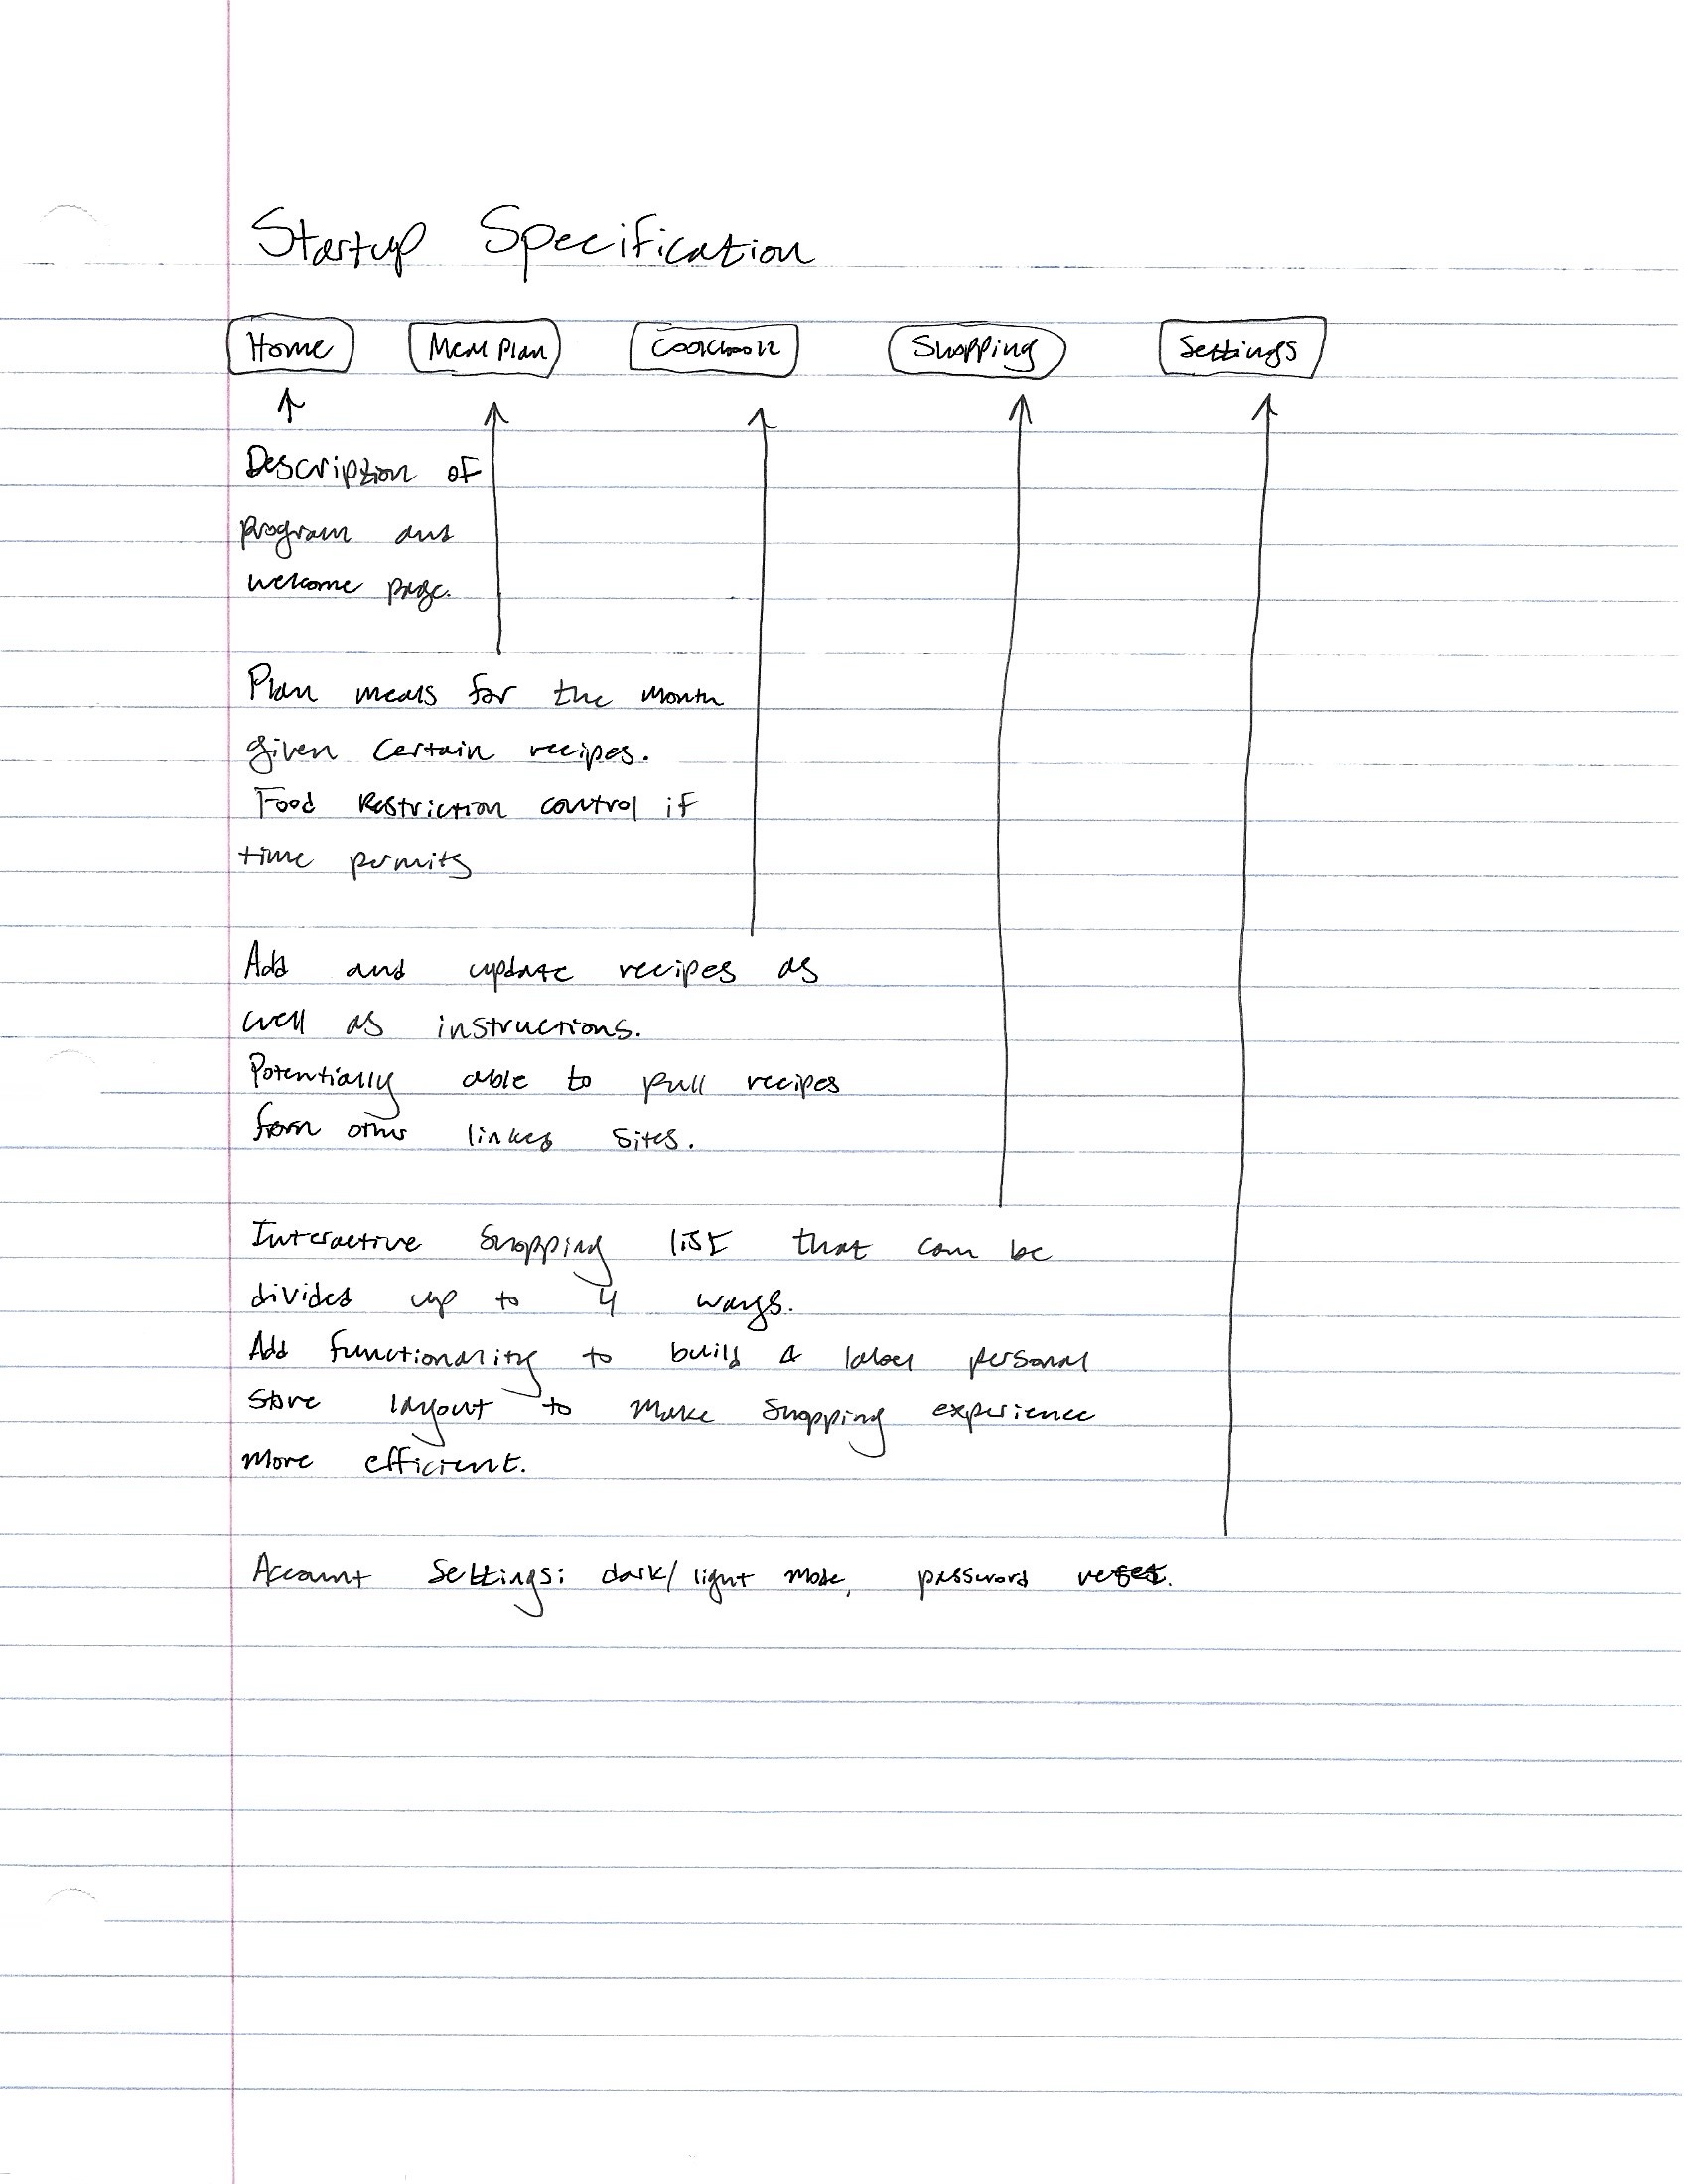 Startup Specification
Home Meal Plan Cookbook Shopping Settings
Description of
program and
welcome page.
Plan meals for the month
given certain recipes.
Food Restriction control if
time permits
Add and update recipes as
well as instructions.
Potentially able to pull recipes
from other linked sites.
Interactive Shopping list that can be
divided up to 4 ways.
Add functionality to build & label personal
store layout to make shopping experience
more efficient.
Account Settings: dark/light mode, password reset.